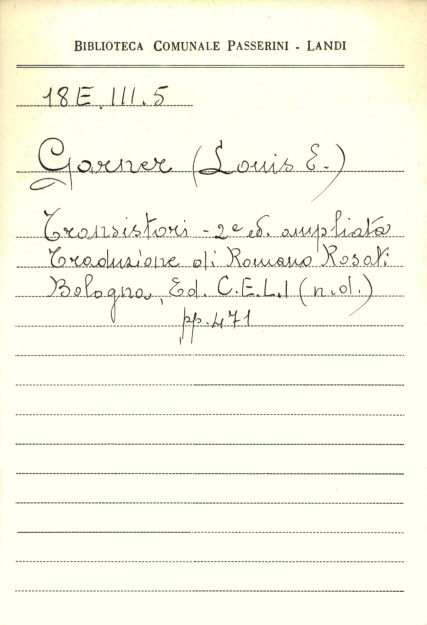 BIBLIOTECA COMUNALE PASSERINI - LANDI
18E.III.5
Garner (Louis E.)
Transistori - 2ª ed. ampliata
Traduzione di Romano Rosati
Bologna, Ed. C.E.L.I (n.d.)
pp. 471